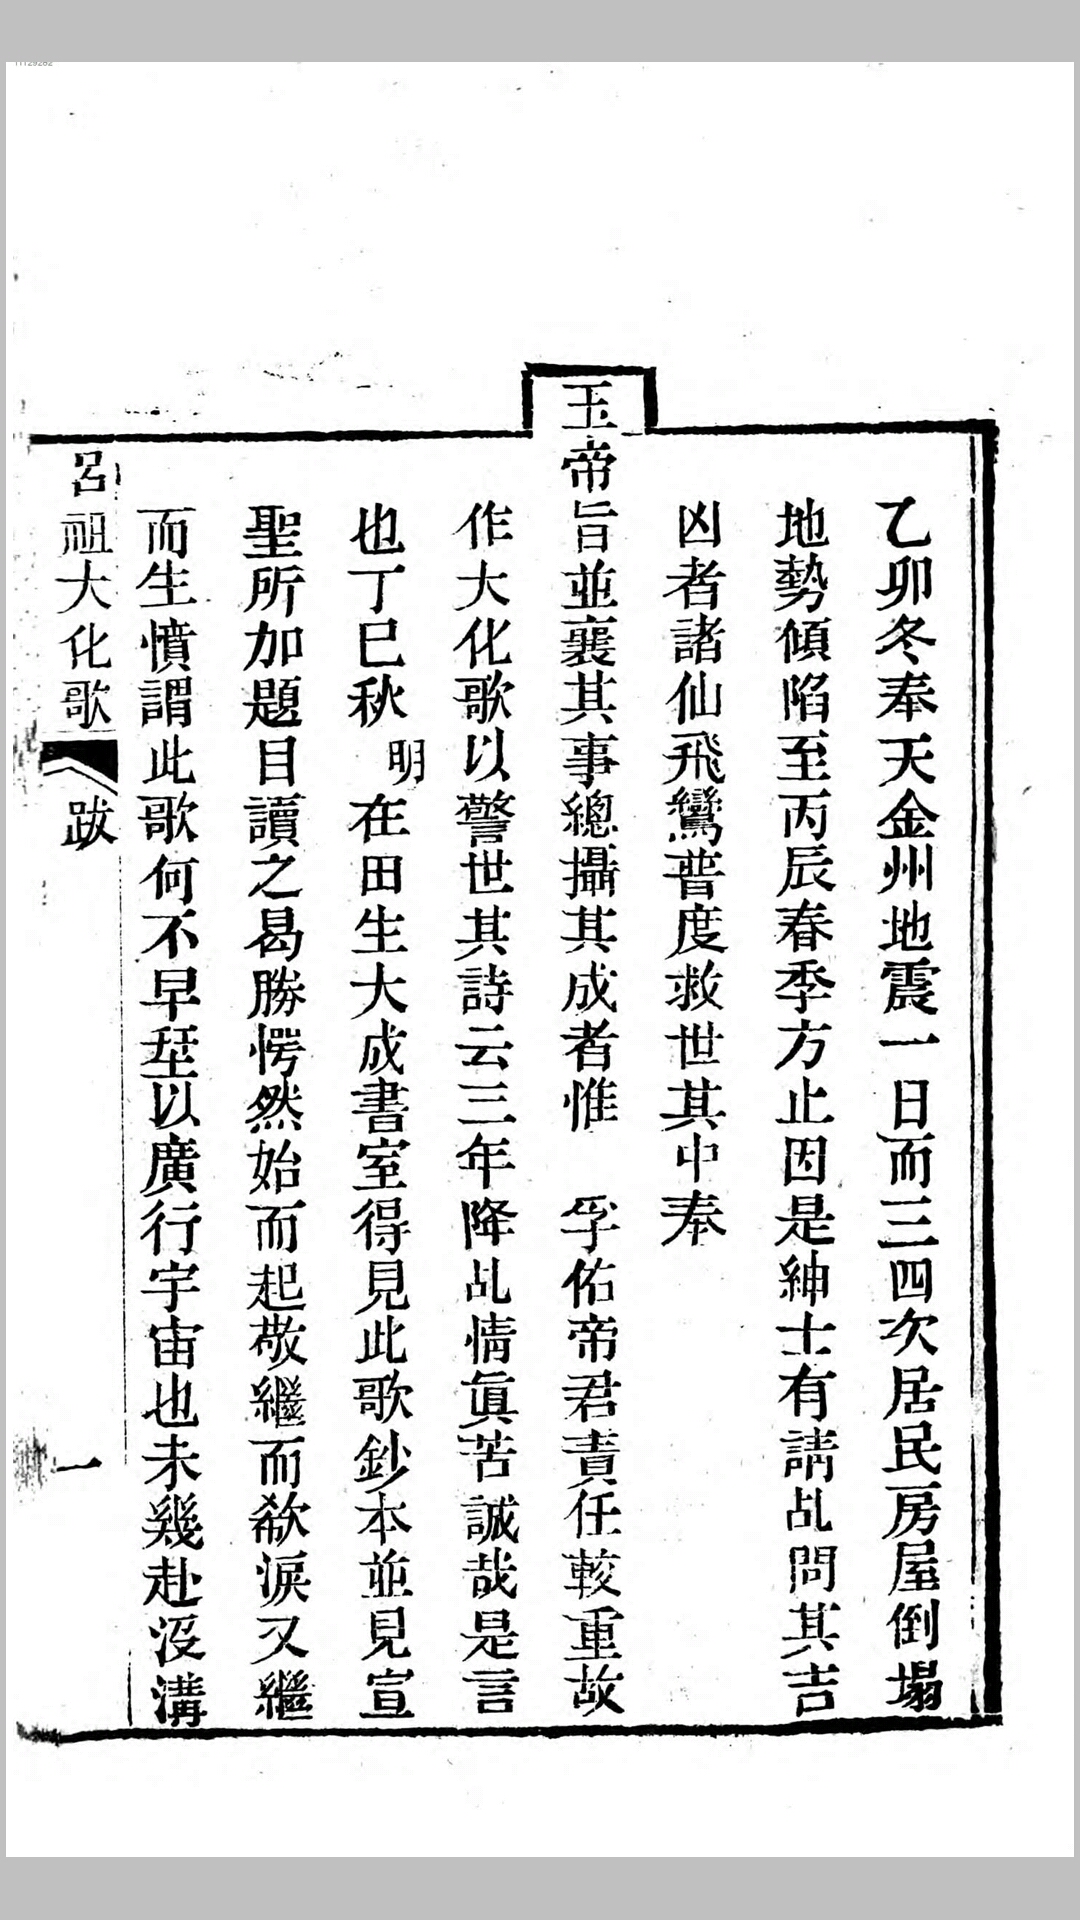 乙卯冬奉天金州地震一日而三四次居民房屋倒塌
地勢傾陷至丙辰春季方止因是紳士有請乩問其吉
凶者諸仙飛鸞普度救世其中奉
玉帝旨並襄其事總攝其成者惟 孚佑帝君責任較重故
作大化歌以警世其詩云三年降乩情眞苦誠哉是言
也丁巳秋 明 在田生大成書室得見此歌鈔本並見宣
聖所加題目讀之曷勝愕然始而起敬繼而欷淚又繼
而生憤謂此歌何不早葊以廣行宇宙也未幾赴沒溝
呂祖大化歌 跋 一